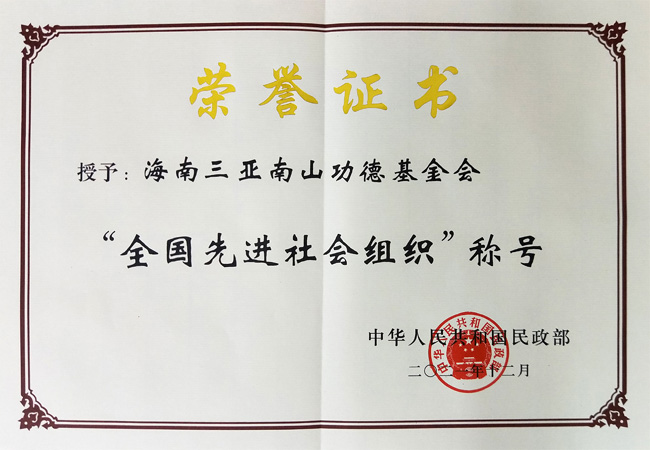 荣誉证书
授予：海南三亚南山功德基金会
“全国先进社会组织”称号
中华人民共和国民政部
二〇二一年十二月
中华人民共和国民政部